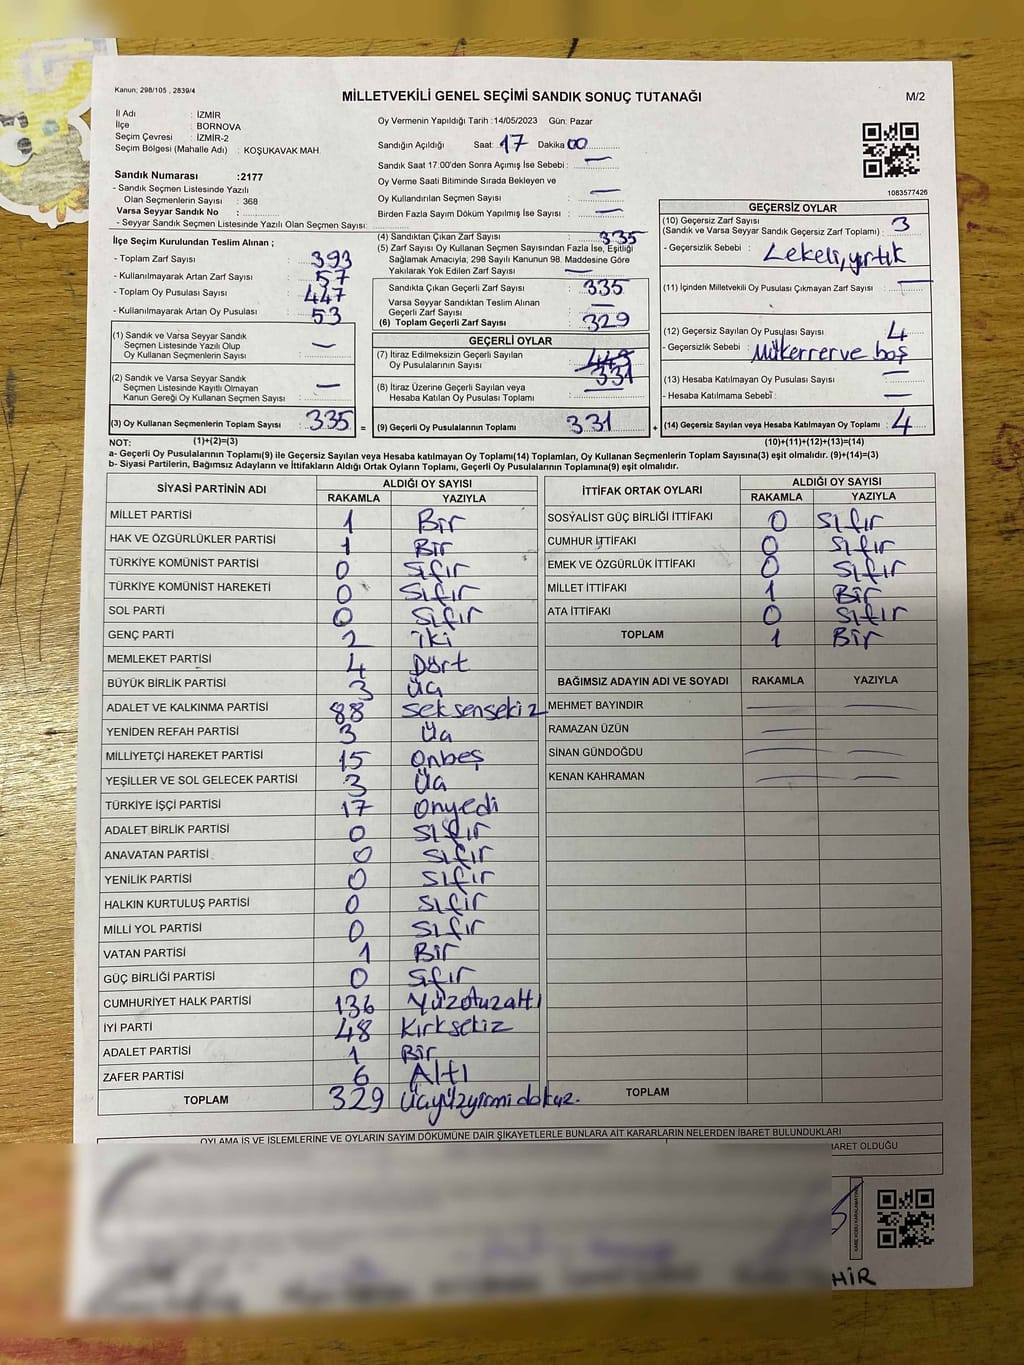 Kanun; 298/105 , 2839/4
MİLLETVEKİLİ GENEL SEÇİMİ SANDIK SONUÇ TUTANAĞI
M/2
İl Adı : İZMİR
İlçe : BORNOVA
Seçim Çevresi : İZMİR-2
Seçim Bölgesi (Mahalle Adı) : KOŞUKAVAK MAH.
Sandık Numarası :2177
- Sandık Seçmen Listesinde Yazılı
Olan Seçmenlerin Sayısı : 368
Varsa Seyyar Sandık No :
- Seyyar Sandık Seçmen Listesinde Yazılı Olan Seçmen Sayısı:
Oy Vermenin Yapıldığı Tarih :14/05/2023 Gün: Pazar
Sandığın Açıldığı Saat: 17 Dakika 00
Sandık Saat 17:00'den Sonra Açımış İse Sebebi : —
Oy Verme Saati Bitiminde Sırada Bekleyen ve
Oy Kullandırılan Seçmen Sayısı : —
Birden Fazla Sayım Döküm Yapılmış İse Sayısı : —
1083577426
İlçe Seçim Kurulundan Teslim Alınan ;
- Toplam Zarf Sayısı : 393
- Kullanılmayarak Artan Zarf Sayısı : 57
- Toplam Oy Pusulası Sayısı : 447
- Kullanılmayarak Artan Oy Pusulası : 53
(1) Sandık ve Varsa Seyyar Sandık
Seçmen Listesinde Yazılı Olup
Oy Kullanan Seçmenlerin Sayısı : —
(2) Sandık ve Varsa Seyyar Sandık
Seçmen Listesinde Kayıtlı Olmayan
Kanun Gereği Oy Kullanan Seçmen Sayısı : —
(3) Oy Kullanan Seçmenlerin Toplam Sayısı : 335
(4) Sandıktan Çıkan Zarf Sayısı : 335
(5) Zarf Sayısı Oy Kullanan Seçmen Sayısından Fazla İse, Eşitliği
Sağlamak Amacıyla, 298 Sayılı Kanunun 98. Maddesine Göre
Yakılarak Yok Edilen Zarf Sayısı : —
Sandıkta Çıkan Geçerli Zarf Sayısı : 335
Varsa Seyyar Sandıktan Teslim Alınan
Geçerli Zarf Sayısı : —
(6) Toplam Geçerli Zarf Sayısı : 329
GEÇERLİ OYLAR
(7) İtiraz Edilmeksizin Geçerli Sayılan
Oy Pusulalarının Sayısı : 331
(8) İtiraz Üzerine Geçerli Sayılan veya
Hesaba Katılan Oy Pusulası Toplamı : —
= (9) Geçerli Oy Pusulalarının Toplamı : 331
GEÇERSİZ OYLAR
(10) Geçersiz Zarf Sayısı
(Sandık ve Varsa Seyyar Sandık Geçersiz Zarf Toplamı) : 3
- Geçersizlik Sebebi : Lekeli, yırtık
(11) İçinden Milletvekili Oy Pusulası Çıkmayan Zarf Sayısı : —
(12) Geçersiz Sayılan Oy Pusulası Sayısı : 4
- Geçersizlik Sebebi : Mükerrer ve boş
(13) Hesaba Katılmayan Oy Pusulası Sayısı : —
- Hesaba Katılmama Sebebi : —
+ (14) Geçersiz Sayılan veya Hesaba Katılmayan Oy Toplamı : 4
NOT: (1)+(2)=(3) (10)+(11)+(12)+(13)=(14)
a- Geçerli Oy Pusulalarının Toplamı(9) ile Geçersiz Sayılan veya Hesaba katılmayan Oy Toplamı(14) Toplamları, Oy Kullanan Seçmenlerin Toplam Sayısına(3) eşit olmalıdır. (9)+(14)=(3)
b- Siyasi Partilerin, Bağımsız Adayların ve İttifakların Aldığı Ortak Oyların Toplamı, Geçerli Oy Pusulalarının Toplamına(9) eşit olmalıdır.
SİYASİ PARTİNİN ADI ALDIĞI OY SAYISI
RAKAMLA YAZIYLA
MİLLET PARTİSİ 1 Bir
HAK VE ÖZGÜRLÜKLER PARTİSİ 1 Bir
TÜRKİYE KOMÜNİST PARTİSİ 0 Sıfır
TÜRKİYE KOMÜNİST HAREKETİ 0 Sıfır
SOL PARTİ 0 Sıfır
GENÇ PARTİ 2 iki
MEMLEKET PARTİSİ 4 Dört
BÜYÜK BİRLİK PARTİSİ 3 Üç
ADALET VE KALKINMA PARTİSİ 88 Seksensekiz
YENİDEN REFAH PARTİSİ 3 Üç
MİLLİYETÇİ HAREKET PARTİSİ 15 Onbeş
YEŞİLLER VE SOL GELECEK PARTİSİ 3 Üç
TÜRKİYE İŞÇİ PARTİSİ 17 Onyedi
ADALET BİRLİK PARTİSİ 0 Sıfır
ANAVATAN PARTİSİ 0 Sıfır
YENİLİK PARTİSİ 0 Sıfır
HALKIN KURTULUŞ PARTİSİ 0 Sıfır
MİLLİ YOL PARTİSİ 0 Sıfır
VATAN PARTİSİ 1 Bir
GÜÇ BİRLİĞİ PARTİSİ 0 Sıfır
CUMHURİYET HALK PARTİSİ 136 Yüzotuzaltı
İYİ PARTİ 48 Kırksekiz
ADALET PARTİSİ 1 Bir
ZAFER PARTİSİ 6 Altı
TOPLAM 329 Üçyüzyirmidokuz.
İTTİFAK ORTAK OYLARI ALDIĞI OY SAYISI
RAKAMLA YAZIYLA
SOSYALİST GÜÇ BİRLİĞİ İTTİFAKI 0 Sıfır
CUMHUR İTTİFAKI 0 Sıfır
EMEK VE ÖZGÜRLÜK İTTİFAKI 0 Sıfır
MİLLET İTTİFAKI 1 Bir
ATA İTTİFAKI 0 Sıfır
TOPLAM 1 Bir
BAĞIMSIZ ADAYIN ADI VE SOYADI RAKAMLA YAZIYLA
MEHMET BAYINDIR — —
RAMAZAN ÜZÜN —
SİNAN GÜNDOĞDU — —
KENAN KAHRAMAN — —
TOPLAM
OYLAMA İŞ VE İŞLEMLERİNE VE OYLARIN SAYIM DÖKÜMÜNE DAİR ŞİKAYETLERLE BUNLARA AİT KARARLARIN NELERDEN İBARET BULUNDUKLARI
BARET OLDUĞU
HİR